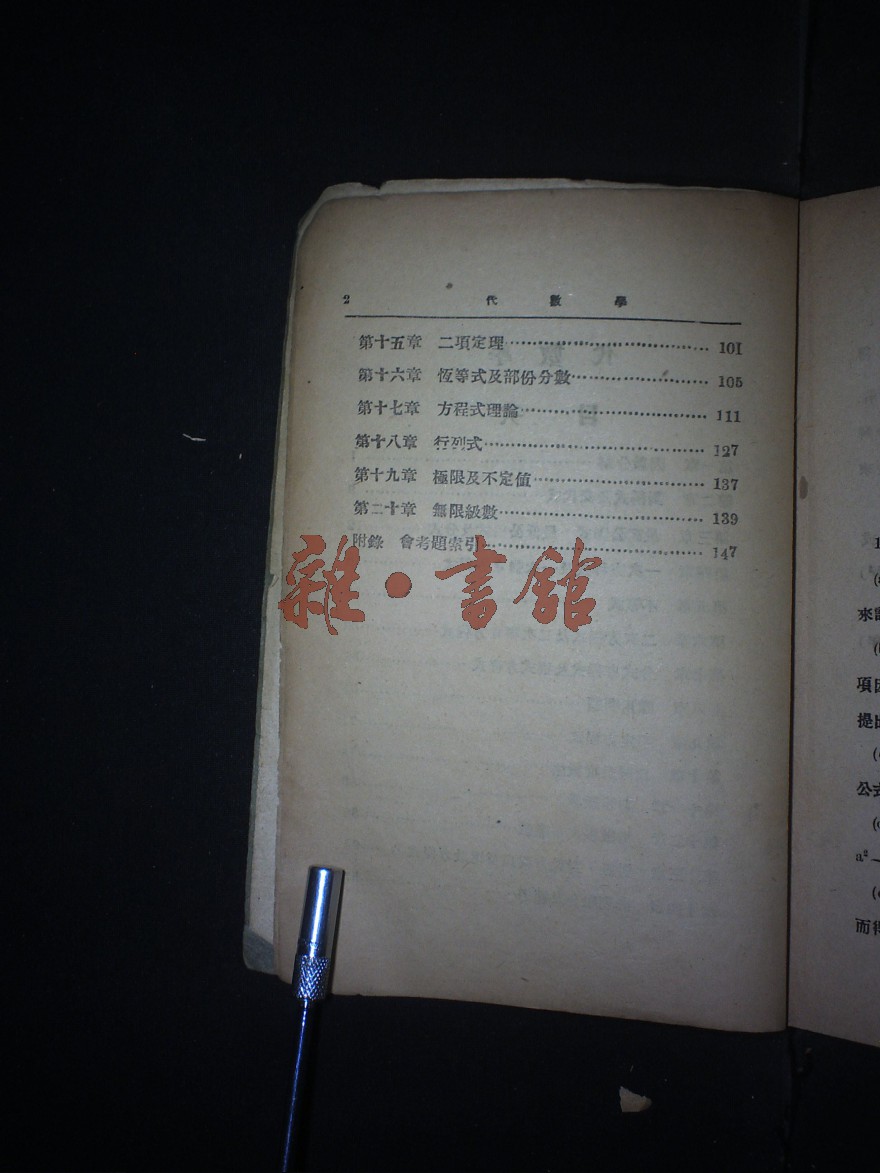 2 代數學
第十五章 二項定理 101
第十六章 恆等式及部份分數 105
第十七章 方程式理論 111
第十八章 行列式 127
第十九章 極限及不定值 137
第二十章 無限級數 139
附錄 會考題索引 147
雜·書館
來
項
提
公式
a²—
而得